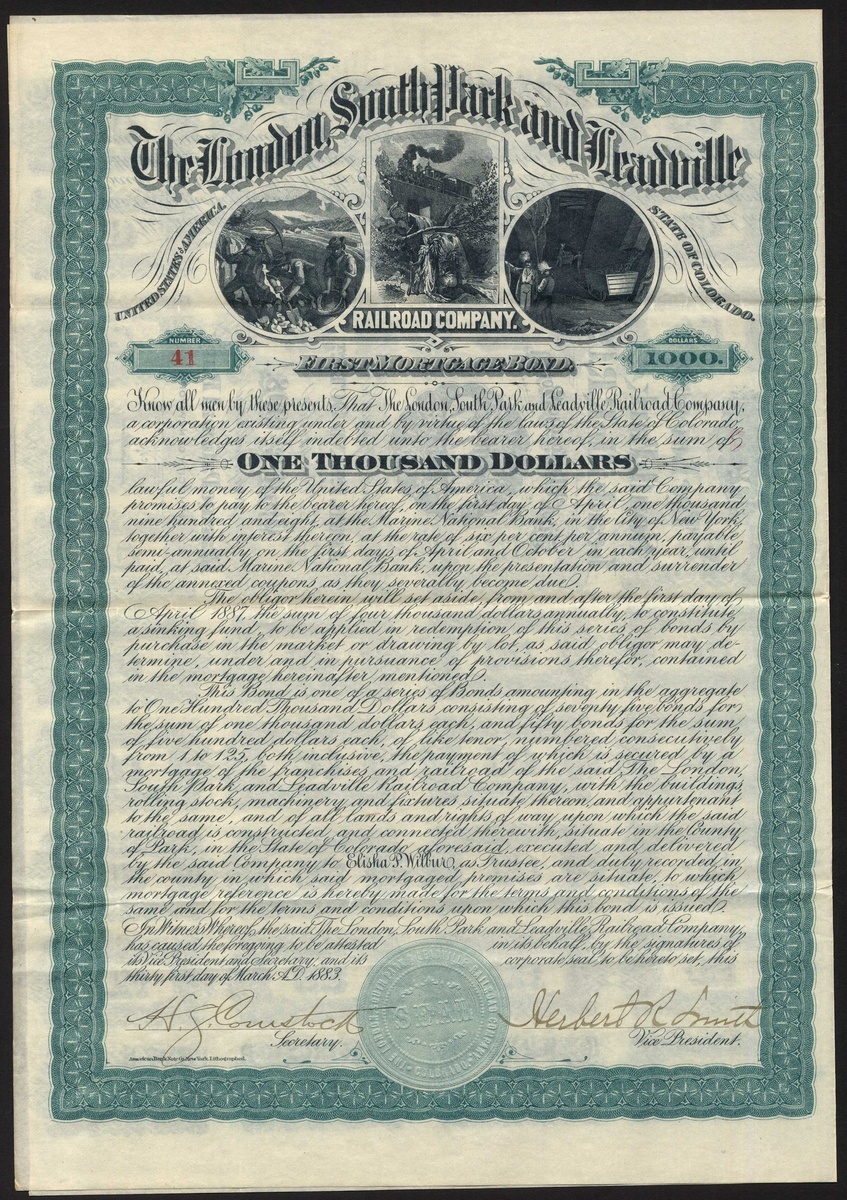 The London, South Park and Leadville
UNITED STATES of AMERICA.
STATE OF COLORADO.
RAILROAD COMPANY.
NUMBER
41
DOLLARS
1000.
FIRST MORTGAGE BOND.
Know all men by these presents, That The London, South Park and Leadville Railroad Company,
a corporation existing under and by virtue of the laws of the State of Colorado,
acknowledges itself indebted unto the bearer hereof, in the sum of
ONE THOUSAND DOLLARS
lawful money of the United States of America, which the said Company
promises to pay to the bearer hereof, on the first day of April, one thousand
nine hundred and eight, at the Marine National Bank, in the City of New York,
together with interest thereon, at the rate of six per cent. per annum, payable
semi-annually on the first days of April and October in each year, until
paid, at said Marine National Bank, upon the presentation and surrender
of the annexed coupons, as they severally become due.
The obligor herein will set aside, from and after the first day of
April 1887, the sum of four thousand dollars annually, to constitute
a sinking fund, to be applied in redemption of this series of bonds by
purchase in the market or drawing by lot, as said obligor may de-
termine, under and in pursuance of provisions therefor, contained
in the mortgage hereinafter mentioned.
This Bond is one of a series of Bonds amounting in the aggregate
to One Hundred Thousand Dollars consisting of seventy five bonds for
the sum of one thousand dollars each, and fifty bonds for the sum
of five hundred dollars each, of like tenor, numbered consecutively
from 1 to 125, both inclusive, the payment of which is secured by a
mortgage of the franchises and railroad of the said, The London,
South Park, and Leadville Railroad Company, with the buildings,
rolling stock, machinery and fixtures situate thereon, and appurtenant
to the same, and of all lands and rights of way upon which the said
railroad is constructed, and connected therewith, situate in the County
of Park, in the State of Colorado, aforesaid, executed and delivered
by the said Company to Elisha P. Wilbur, as Trustee, and duly recorded in
the county in which said mortgaged premises are situate, to which
mortgage reference is hereby made for the terms and conditions of the
same and for the terms and conditions upon which this bond is issued.
In Witness Whereof, the said The London, South Park and Leadville Railroad Company,
has caused the foregoing to be attested in its behalf, by the signatures of
its Vice President and Secretary, and its corporate seal to be hereto set, this
thirty first day of March A.D. 1883.
H. J. Comstock
Herbert R. Smith
Secretary.
Vice President.
SEAL
American Bank Note Co. New York. Lithographed.